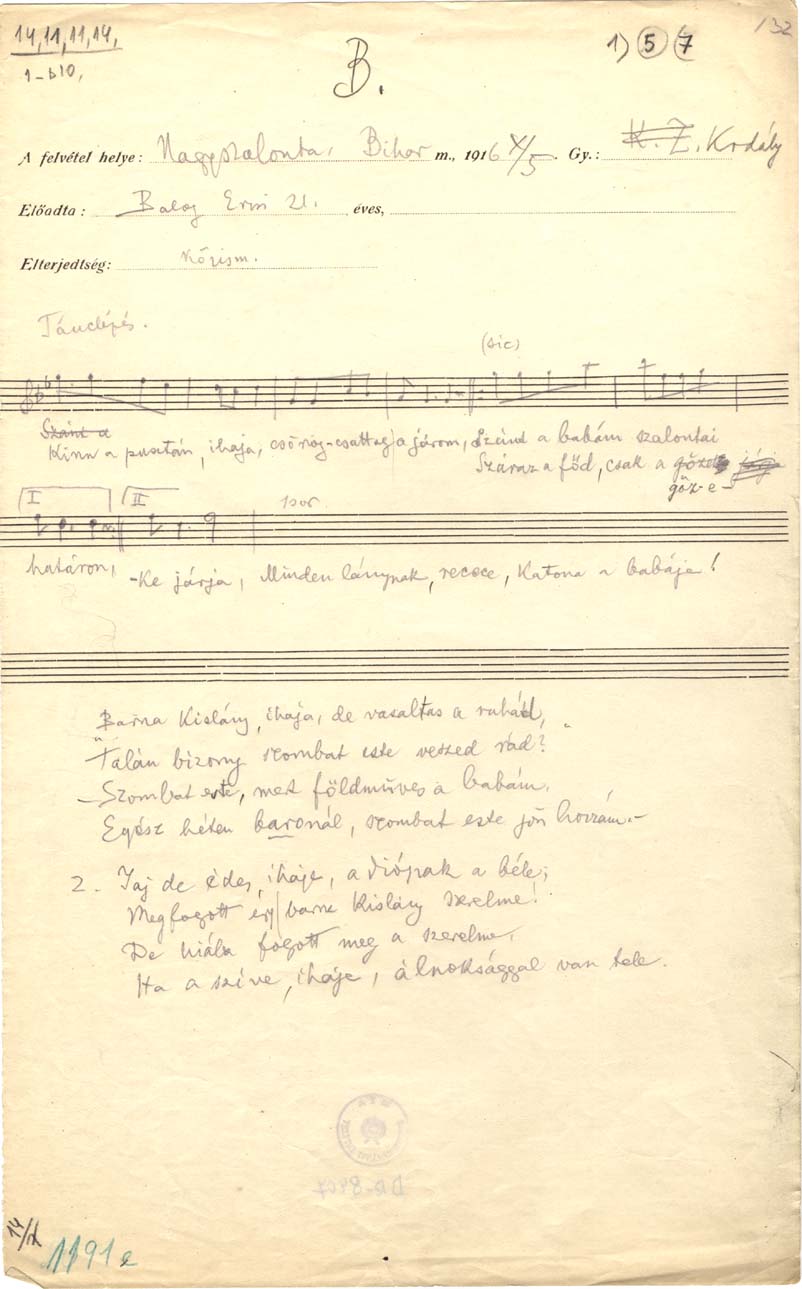 14, 11, 11, 14,
1-b10,
B.
1) 5 7
132
A felvétel helye: Nagyszalonta, Bihar m., 1916 X/5. Gy.: K. Z. Kodály
Előadta: Balog Erzsi 21. éves,
Elterjedtség: közism.
Tánclépés.
(sic)
Szánt a
Kinn a pusztán, ihaja, csörög-csattog a járom, Szánt a babám szalontai
Száraz a főd, csak a
gőz-e-
I II 1 sor
határon, -ke járja, Minden lánynak, recece, katona a babája!
Barna kislány, ihaja, de vasaltas a ruhád,
Talán bizony szombat este veszed rád?
-Szombat este, mert földműves a babám.
Egész héten baronál, szombat este jön hozzám.-
2. Jaj de édes, ihaje, a diópak a béle;
Megfogott egy barna kislány szerelme!
De hiába fogott meg a szerelme,
Ha a szíve, ihaje, álnoksággal van tele.
14/
1191e